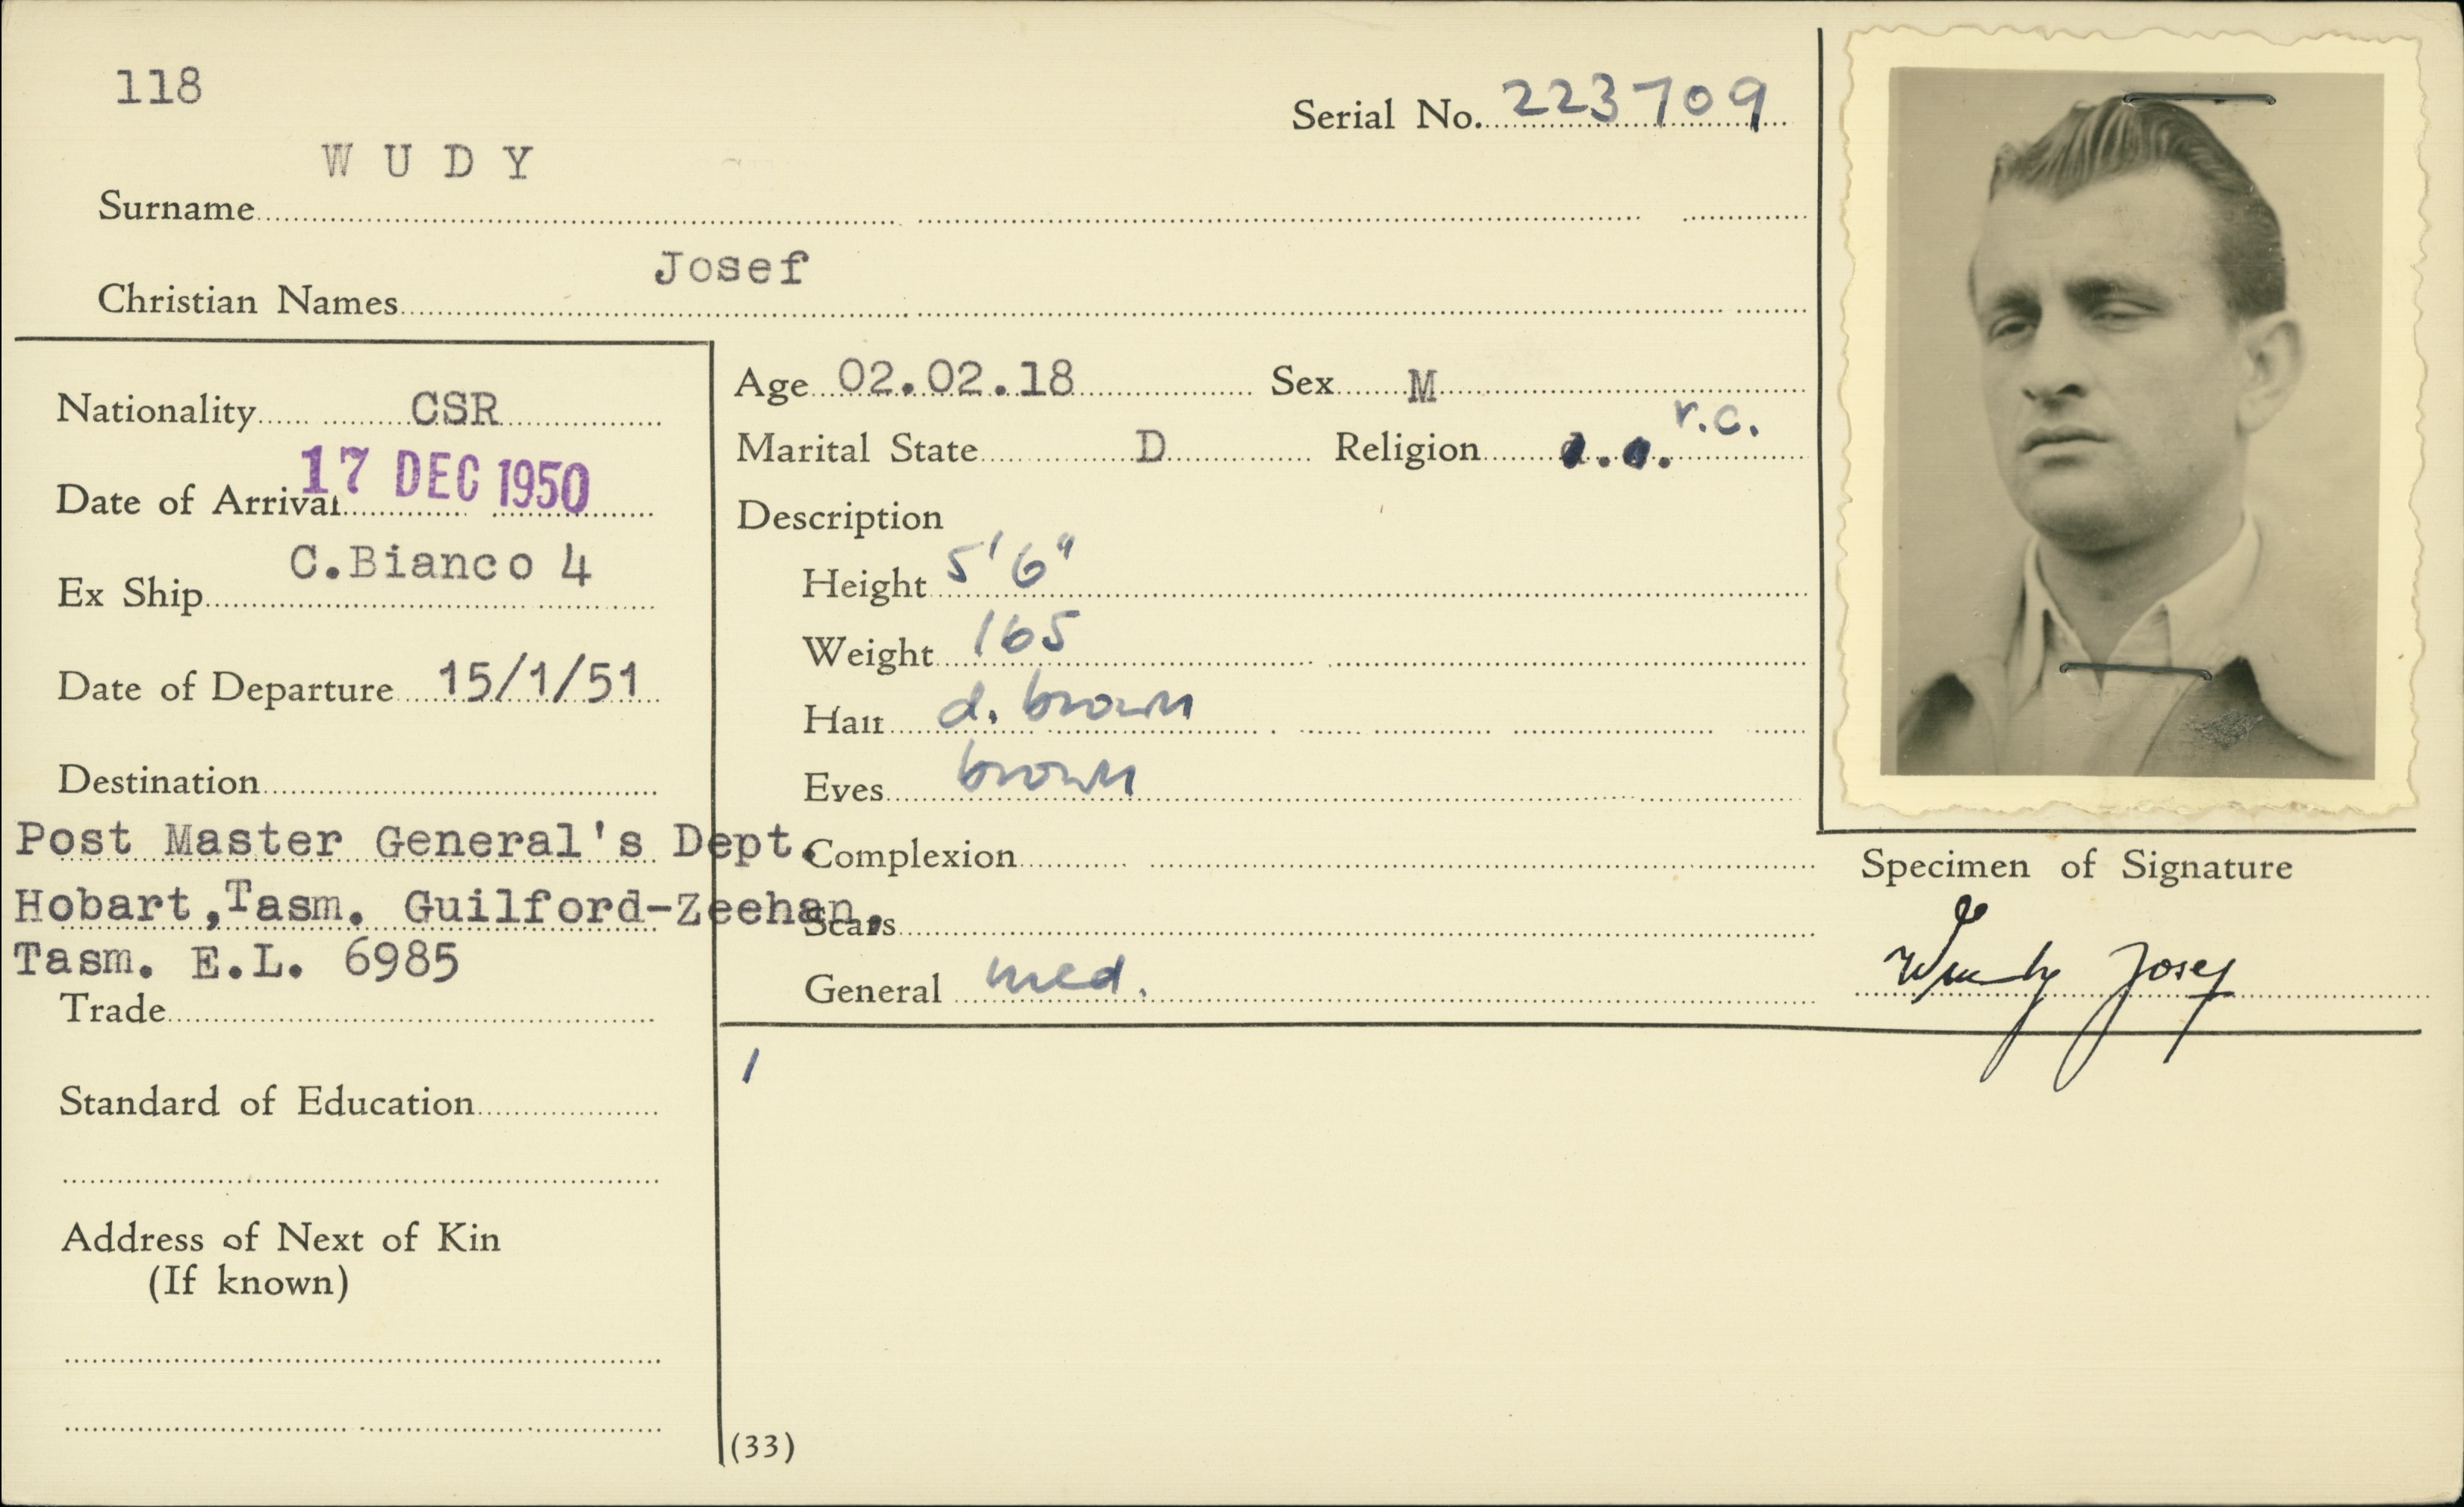 118
Serial No. 223709
WUDY
Surname
Josef
Christian Names
Nationality CSR
Date of Arrival 17 DEC 1950
C.Bianco 4
Ex Ship
Date of Departure 15/1/51
Destination
Post Master General's Dept.
Hobart,Tasm. Guilford-Zeehan,
Tasm. E.L. 6985
Trade
Standard of Education
Address of Next of Kin
(If known)
Age 02.02.18 Sex M
Marital State D Religion r.c.
Description
Height 5'6"
Weight 165
Hair d. brown
Eyes brown
Complexion
Scars
General med.
1
(33)
Specimen of Signature
Wudy Josef